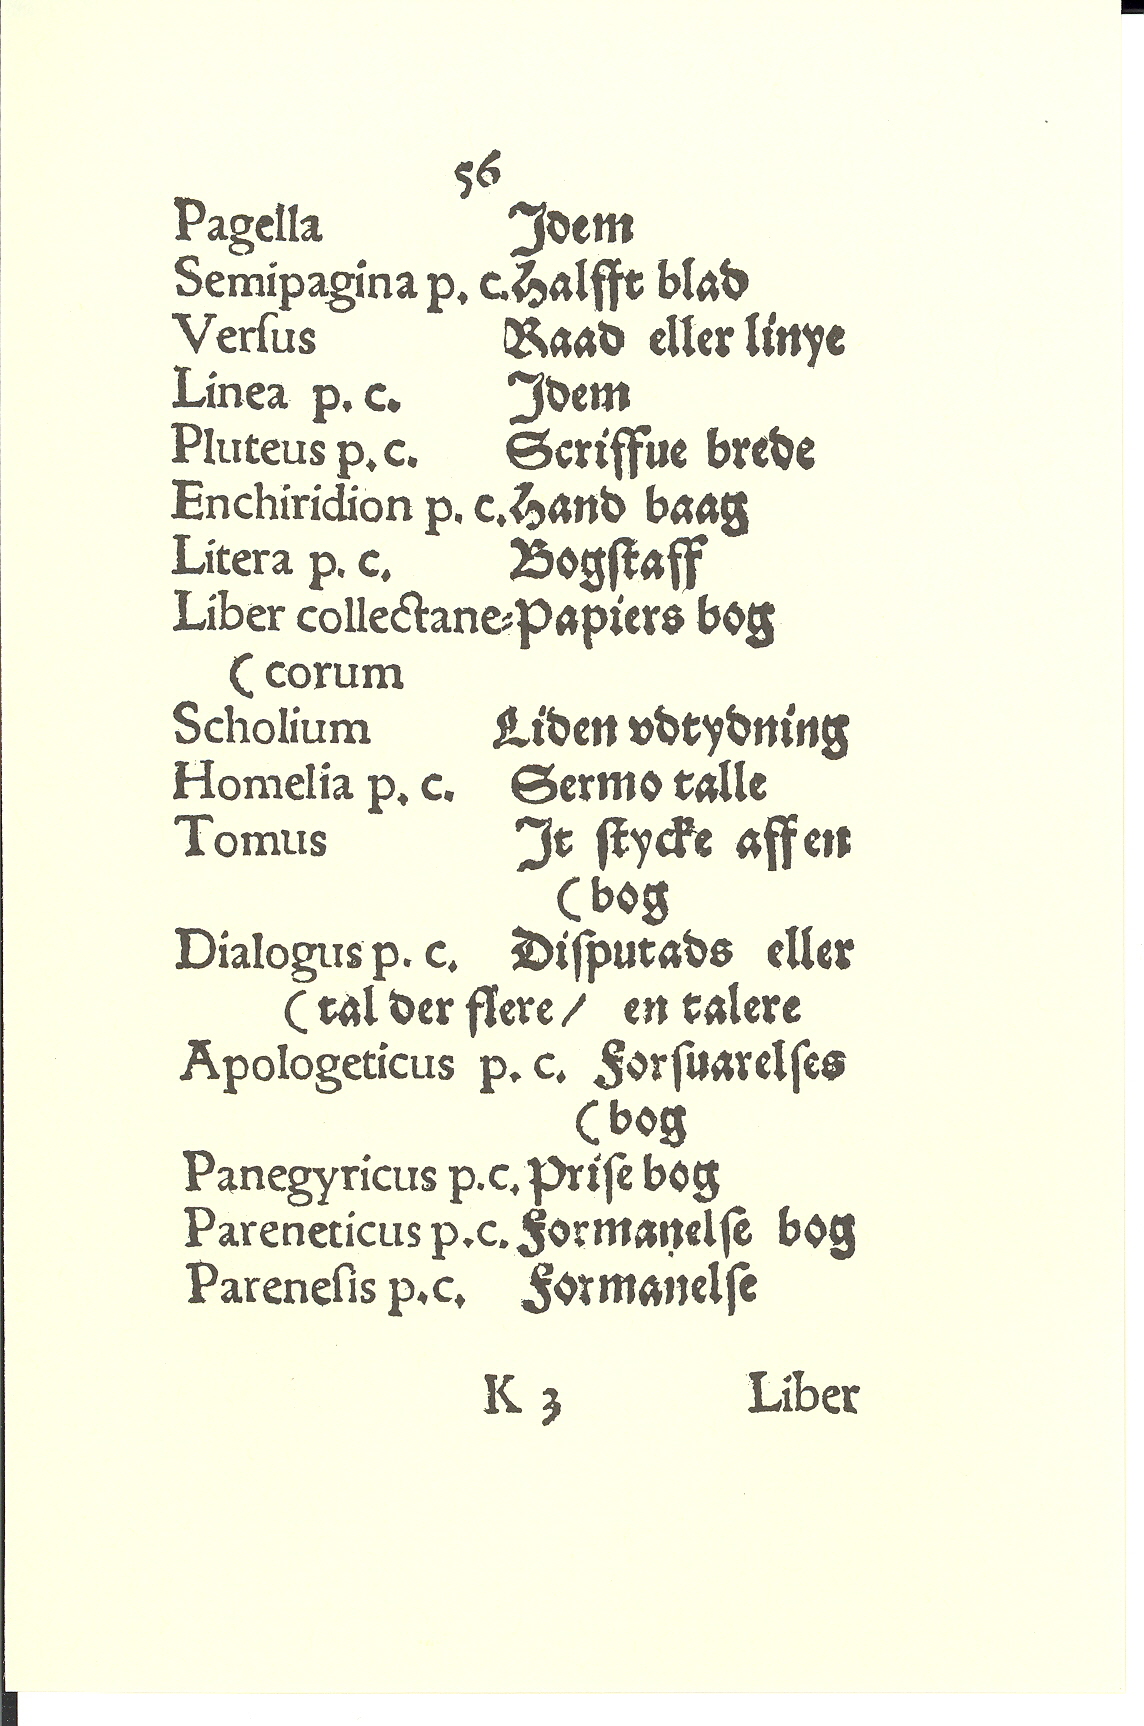 56
Pagella Idem
Semipagina p. c. Halfft blad
Verſus Raad eller linye
Linea p. c. Idem
Pluteus p. c. Scriffue brede
Enchiridion p. c. Hand baag
Litera p. c. Bogſtaff
Liber collectane⸗ Papiers bog
( corum
Scholium Liden vdtydning
Homelia p. c. Sermo talle
Tomus It ſtycke aff en
( bog
Dialogus p. c. Diſputads eller
( tal der flere / en talere
Apologeticus p. c. Forſuarelſes
( bog
Panegyricus p. c. Priſe bog
Pareneticus p. c. Formanelſe bog
Pareneſis p. c. Formanelſe
K 3 Liber